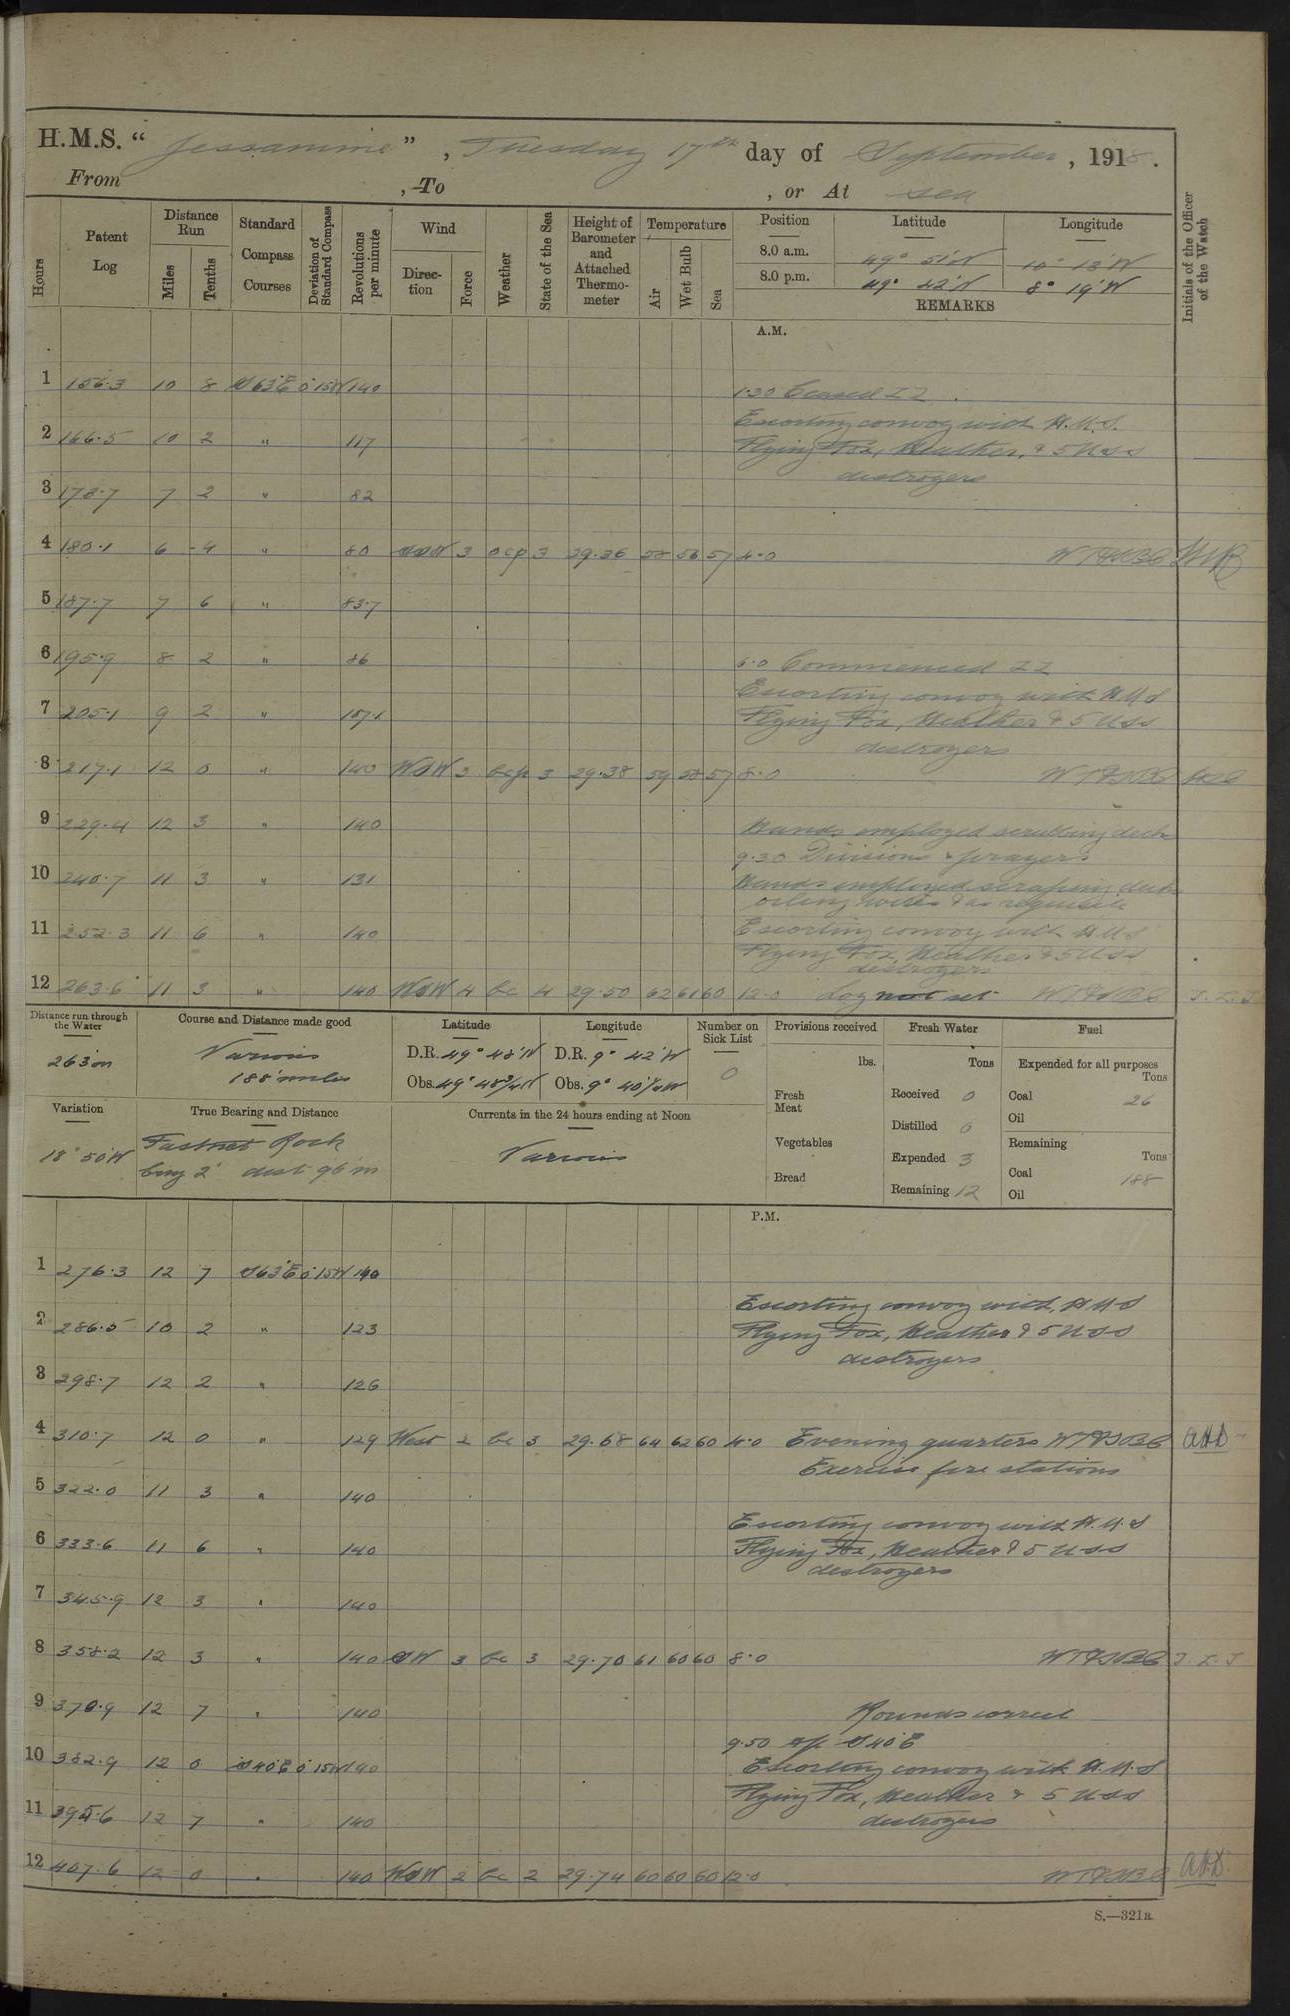 H.M.S. “ Jessamine ” , Tuesday 17th day of September , 1918 .
From , To , or At sea
Hours
Patent Log
Distance Run
Miles
Tenths
Standard Compass Courses
Deviation of Standard Compass
Revolutions per minute
Wind
Direction
Force
Weather
State of the Sea
Height of Barometer and Attached Thermometer
Temperature
Air
Wet Bulb
Sea
Position Latitude Longitude
8.0 a.m. 49° 51'N 10° 13'W
8.0 p.m. 49° 42'N 8° 19'W
REMARKS
Initials of the Officer of the Watch
A.M.
1 156.3 10 8 S63°E 0°15W 140 1.30 Ceased ZZ .
Escorting convoy with H.M.S.
2 166.5 10 2 " 117 Flying Fox, Heather, & 5 USS
destroyers
3 173.7 7 2 " 82
4 180.1 6 4 " 80 3 ocp 3 29.36 58 56 57 4.0
5 187.7 7 6 " 83.7
6 195.9 8 2 " 86 6.0 Commenced ZZ
Escorting convoy with HMS
7 205.1 9 2 " 107.1 Flying Fox, Heather & 5 USS
destroyers
8 217.1 12 0 " 140 WSW 3 bcp 3 29.38 59 58 57 8.0
9 229.4 12 3 " 140 Hands employed scrubbing decks
9.30 Divisions & prayers
10 240.7 11 3 " 131 Hands employed scraping decks
oiling wires & as requisite
11 252.3 11 6 " 140 Escorting convoy with HMS
Flying Fox, Heather & 5 USS
destroyers
12 263.6 11 3 " 140 WSW 4 bc 4 29.50 62 61 60 12.0 Log not set
Distance run through the Water
263 m
Course and Distance made good
Various
188 miles
Latitude
D.R. 49° 48'N
Obs. 49° 48¾N
Longitude
D.R. 9° 42'W
Obs. 9° 40¼W
Number on Sick List
0
Provisions received
lbs.
Fresh Meat
Vegetables
Bread
Fresh Water
Tons
Received 0
Distilled 0
Expended 3
Remaining 12
Fuel
Expended for all purposes
Tons
Coal 26
Oil
Remaining
Tons
Coal 188
Oil
Variation
18° 50'W
True Bearing and Distance
Fastnet Rock
brng 2° dist 96 m
Currents in the 24 hours ending at Noon
Various
P.M.
1 276.3 12 7 S63°E 0°15W 140
Escorting convoy with HMS
2 286.5 10 2 " 123 Flying Fox, Heather & 5 USS
destroyers
3 298.7 12 2 " 126
4 310.7 12 0 " 129 West 2 bc 3 29.68 64 62 60 4.0 Evening quarters
Exercise fire stations
5 322.0 11 3 " 140
Escorting convoy with H.M.S
6 333.6 11 6 " 140 Flying Fox, Heather & 5 USS
destroyers
7 345.9 12 3 " 140
8 358.2 12 3 " 140 SW 3 bc 3 29.70 61 60 60 8.0
9 370.9 12 7 " 140 Rounds correct
9.50 a/c S40°E
10 382.9 12 0 S40°E 0°15W 140 Escorting convoy with H.M.S
Flying Fox, Heather & 5 USS
11 395.6 12 7 " 140 destroyers
12 407.6 12 0 " 140 WSW 2 bc 2 29.74 60 60 60 12.0
S.—321B.